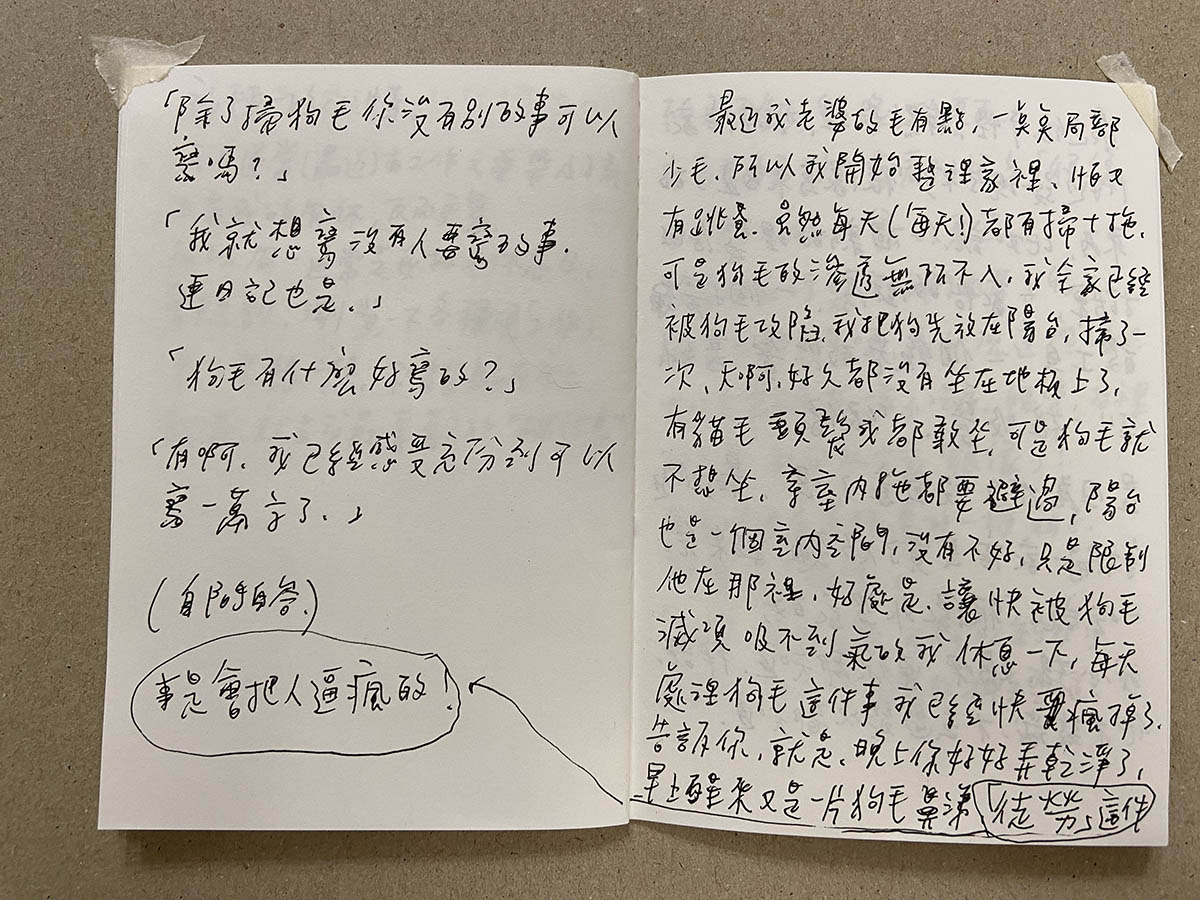 「除了掃狗毛你沒有別的事可以
寫嗎？」
「我就想寫沒有人要寫的事.
連日記也是.」
「狗毛有什麼好寫的？」
「有啊. 我已經感受充份到可以
寫一萬字了.」
(自問自答.)
事是會把人逼瘋的！
最近我老婆的毛有點, 一莫莫局部
少毛. 所以我開始整理家裡、怕又
有跳蚤. 虽然每天(每天!)都有掃十拖,
可是狗毛的滲透無所不入, 我全家已經
被狗毛攻陷. 我把狗先放在陽台, 掃了一
次、天啊, 好久都沒有坐在地板上了,
有貓毛 頭髮我都敢坐, 可是狗毛就
不想坐. 室內拖都要避過, 陽台
也是一個室內空間, 沒有不好, 只是限制
他在那裡. 好處是. 讓快被狗毛
滅頂 吸不到氣的我 休息一下, 每天
處理狗毛這件事 我已經快 瘋掉了.
告訴你, 就是, 晚上你好好弄乾淨了,
早上醒來又是一片狗毛鼻涕「徒勞」這件